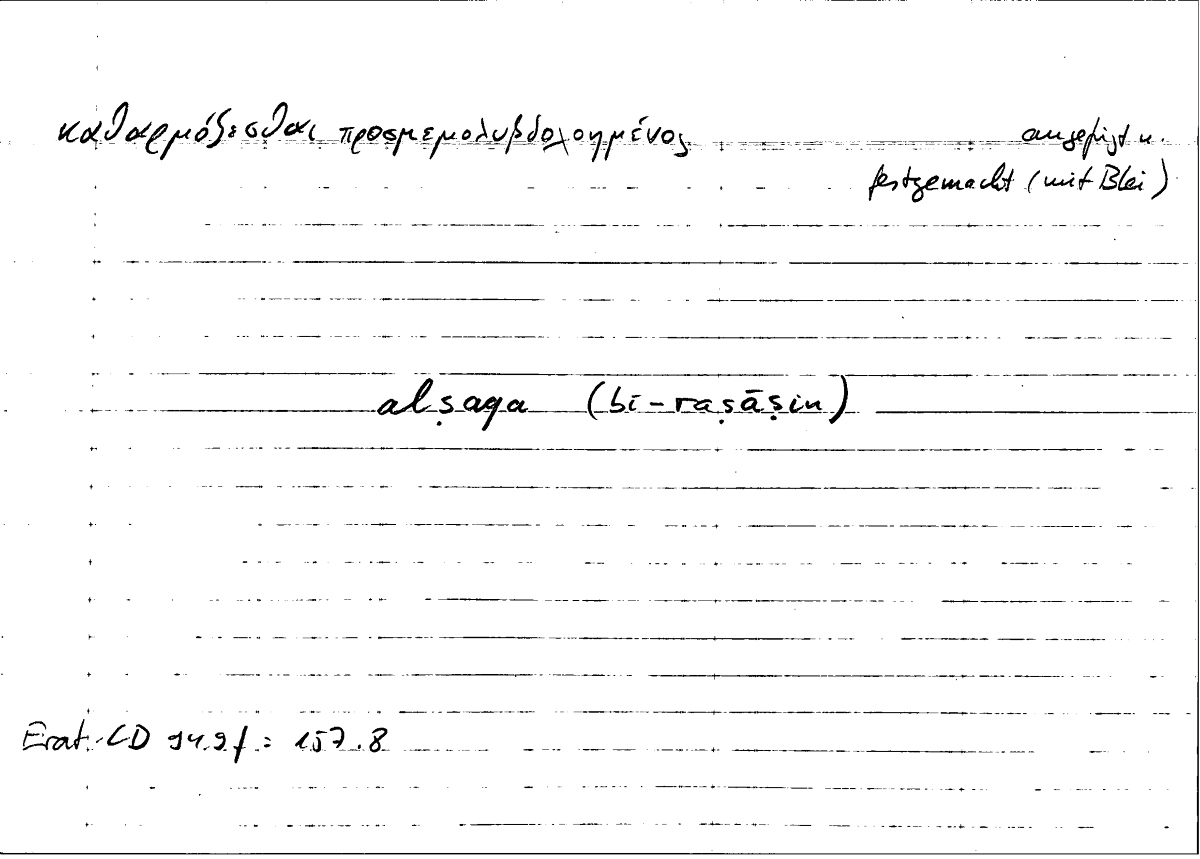 καθαρμόζεσθαι προσμεμολυβδοχοημένος angefügt u.
festgemacht (mit Blei)
alṣaqa (bi-raṣāṣin)
Erat. CD 94.9f = 157.8